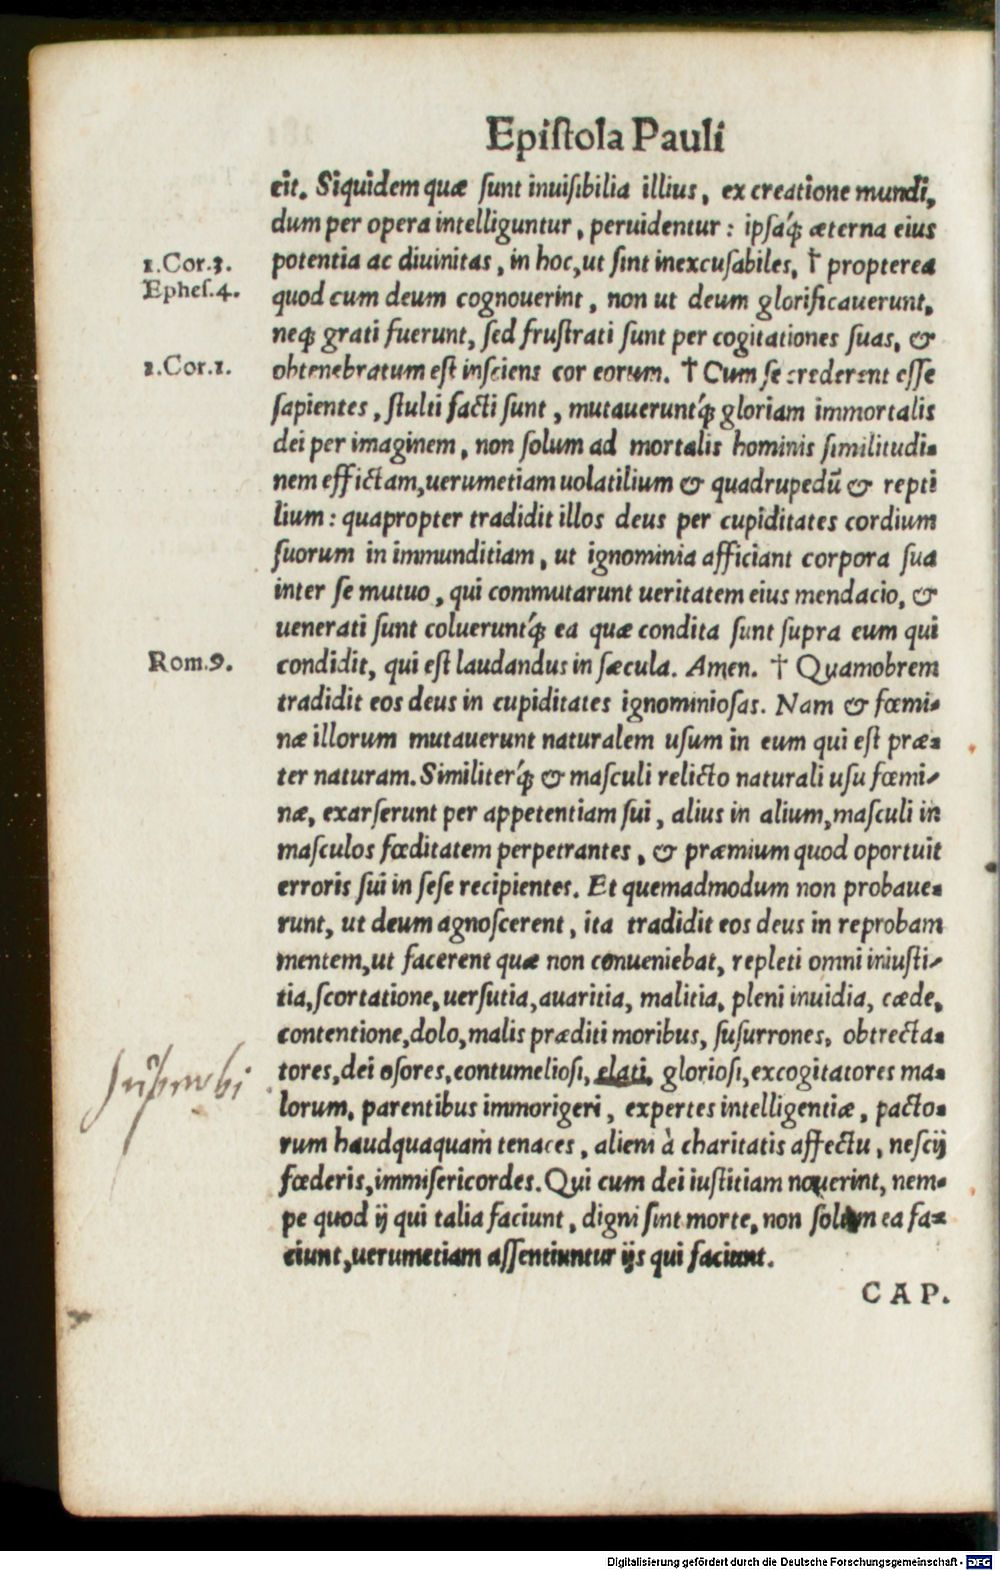 Epiſtola Pauli
cit. Siquidem quæ ſunt inuiſibilia illius, ex creatione mundi,
dum per opera intelliguntur, peruidentur: ipſaq́ꝫ æterna eius
1.Cor.3.
potentia ac diuinitas, in hoc, ut ſint inexcuſabiles, † propterea
Epheſ.4.
quod cum deum cognouerint, non ut deum glorificauerunt,
neqꝫ grati fuerunt, ſed fruſtrati ſunt per cogitationes ſuas, &
1.Cor.1.
obtenebratum eſt inſciens cor eorum. † Cum ſe crederent eſſe
ſapientes, ſtulti facti ſunt, mutaueruntq́ꝫ gloriam immortalis
dei per imaginem, non ſolum ad mortalis hominis ſimilitudi-
nem effictam, uerumetiam uolatilium & quadrupedū & repti
lium: quapropter tradidit illos deus per cupiditates cordium
ſuorum in immunditiam, ut ignominia afficiant corpora ſua
inter ſe mutuo, qui commutarunt ueritatem eius mendacio, &
uenerati ſunt colueruntq́ꝫ ea quæ condita ſunt ſupra eum qui
Rom.9.
condidit, qui eſt laudandus in ſæcula. Amen. † Quamobrem
tradidit eos deus in cupiditates ignominioſas. Nam & fœmi-
næ illorum mutauerunt naturalem uſum in eum qui eſt præ-
ter naturam. Similiterq́ꝫ & maſculi relicto naturali uſu fœmi-
næ, exarſerunt per appetentiam ſui, alius in alium, maſculi in
maſculos fœditatem perpetrantes, & præmium quod oportuit
erroris ſui in ſeſe recipientes. Et quemadmodum non probaue-
runt, ut deum agnoſcerent, ita tradidit eos deus in reprobam
mentem, ut facerent quæ non conueniebat, repleti omni iniuſti-
tia, ſcortatione, uerſutia, auaritia, malitia, pleni inuidia, cæde,
contentione, dolo, malis præditi moribus, ſuſurrones, obtrecta-
ſuperbi
tores, dei oſores, contumelioſi, elati, glorioſi, excogitatores ma-
lorum, parentibus immorigeri, expertes intelligentiæ, pacto-
rum haudquaquam tenaces, alieni à charitatis affectu, neſcij
fœderis, immiſericordes. Qui cum dei iuſtitiam nouerint, nem-
pe quod ij qui talia faciunt, digni ſint morte, non ſolum ea fa-
ciunt, uerumetiam aſſentiuntur ijs qui faciunt.
CAP.
Digitalisierung gefördert durch die Deutsche Forschungsgemeinschaft - DFG